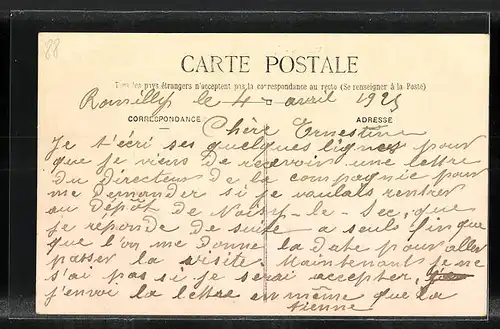 88
CARTE POSTALE
Tous les pays étrangers n'acceptent pas la correspondance au recto (Se renseigner à la Poste)
Romilly le 4 avril 1925
CORRESPONDANCE
ADRESSE
Chère Ernestine
Je t'écri ses quelques lignes pour
que je viens de recevoir une lettre
du Directeur de la compagnie pour
me demander si je voulais rentrer
au Dépôt de Noisy-le-Sec, que
je réponde de suite a seuls fin que
que l'on me donne la date pour aller
passer la visite. Maintenant je ne
s'ai pas si je serai accepter,
j'envoi la lettre en même que la
tienne